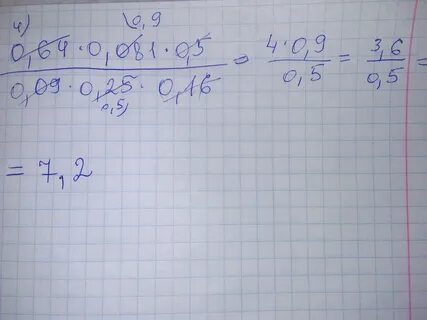 4)
\0,9
0,64 · 0,081 · 0,5 / 0,09 · 0,25 · 0,16 = 4 · 0,9 / 0,5 = 3,6 / 0,5 =
0,5)
= 7,2